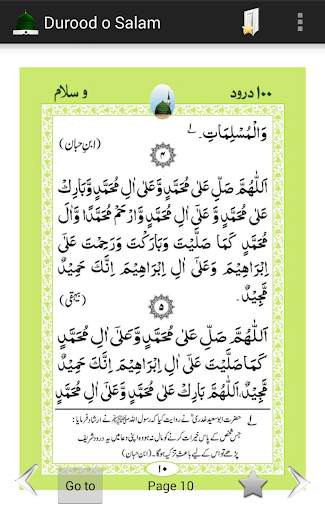 Durood o Salam
۱۰۰ درود و سلام
وَالْمُسْلِمَاتِ۔ ؎۱ (ابنِ حبان)
۴
اَللّٰهُمَّ صَلِّ عَلٰى مُحَمَّدٍ وَّعَلٰٓى اٰلِ مُحَمَّدٍ وَّبَارِكْ
عَلٰى مُحَمَّدٍ وَّ عَلٰٓى اٰلِ مُحَمَّدٍ وَّارْحَمْ مُحَمَّدًا وَّاٰلَ
مُحَمَّدٍ كَمَا صَلَّيْتَ وَبَارَكْتَ وَرَحِمْتَ عَلٰٓى
اِبْرَاهِيْمَ وَعَلٰٓى اٰلِ اِبْرَاهِيْمَ اِنَّكَ حَمِيْدٌ
مَّجِيْدٌ۔ (بیہقی)
۵
اَللّٰهُمَّ صَلِّ عَلٰى مُحَمَّدٍ وَّعَلٰٓى اٰلِ مُحَمَّدٍ
كَمَا صَلَّيْتَ عَلٰٓى اِبْرَاهِيْمَ اِنَّكَ حَمِيْدٌ
مَّجِيْدٌ اَللّٰهُمَّ بَارِكْ عَلٰى مُحَمَّدٍ وَّعَلٰٓى اٰلِ مُحَمَّدٍ
؎۱ حضرت ابوسعید خدریؓ نے روایت کیا کہ رسول اللہ ﷺ نے ارشاد فرمایا:
جس شخص کے پاس خیرات کرنے کو مال نہ ہو وہ اپنی دعا میں یہ درود شریف
پڑھے تو اس کے لیے باعث تزکیہ ہوگا۔ (ابن حبان)
۱۰
Go to
Page 10